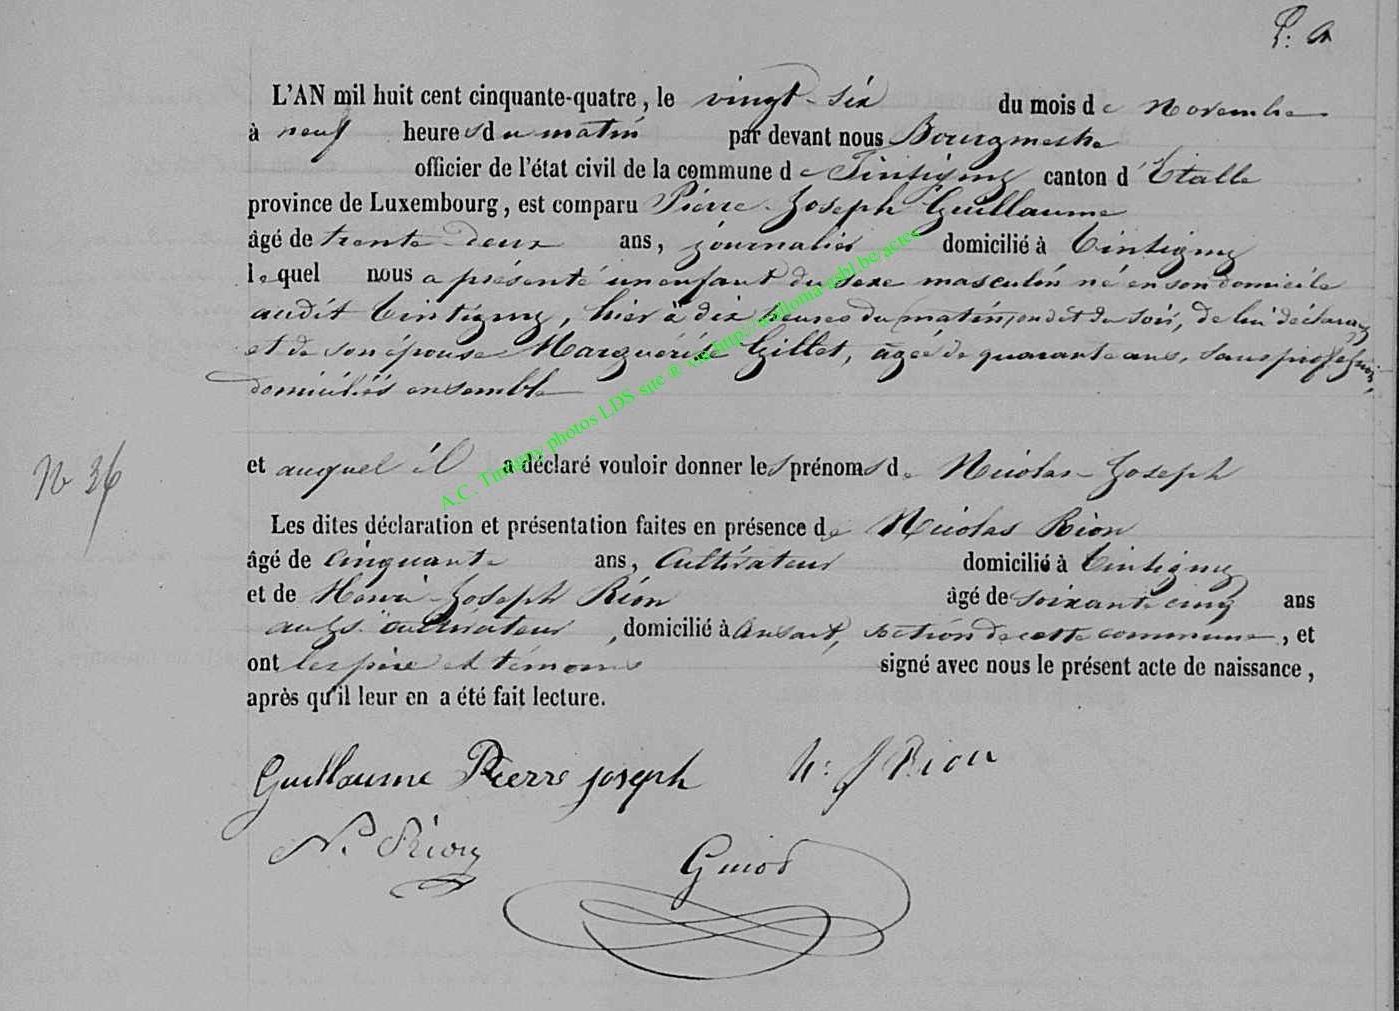 L'AN mil huit cent cinquante-quatre, le vingt-six du mois de Novembre
à neuf heures du matin par devant nous Bourgmestre
officier de l'état civil de la commune de Tintigny canton d'Etalle
province de Luxembourg, est comparu Pierre-Joseph Guillaume
âgé de trente-deux ans, journalier domicilié à Tintigny
lequel nous a présenté un enfant du sexe masculin né en son domicile
audit Tintigny, hier à dix heures du matin, on dit du soir, de lui déclarant
et de son épouse Marguérite Gillet, âgée de quarante ans, sans profession,
domiciliés ensemble
N 36
et auquel il a déclaré vouloir donner les prénoms de Nicolas-Joseph
Les dites déclaration et présentation faites en présence de Nicolas Rion
âgé de cinquante ans, Cultivateur domicilié à Tintigny
et de Henri-Joseph Rion âgé de soixante cinq ans
aussi cultivateur, domicilié à Ansart, section de cette commune, et
ont les père et témoins signé avec nous le présent acte de naissance,
après qu'il leur en a été fait lecture.
Guillaume Pierre joseph h: J Rion
N. Rion Guiot
A.C. Tintigny photos LDS site ® via http://walloma-asbl.be/actes